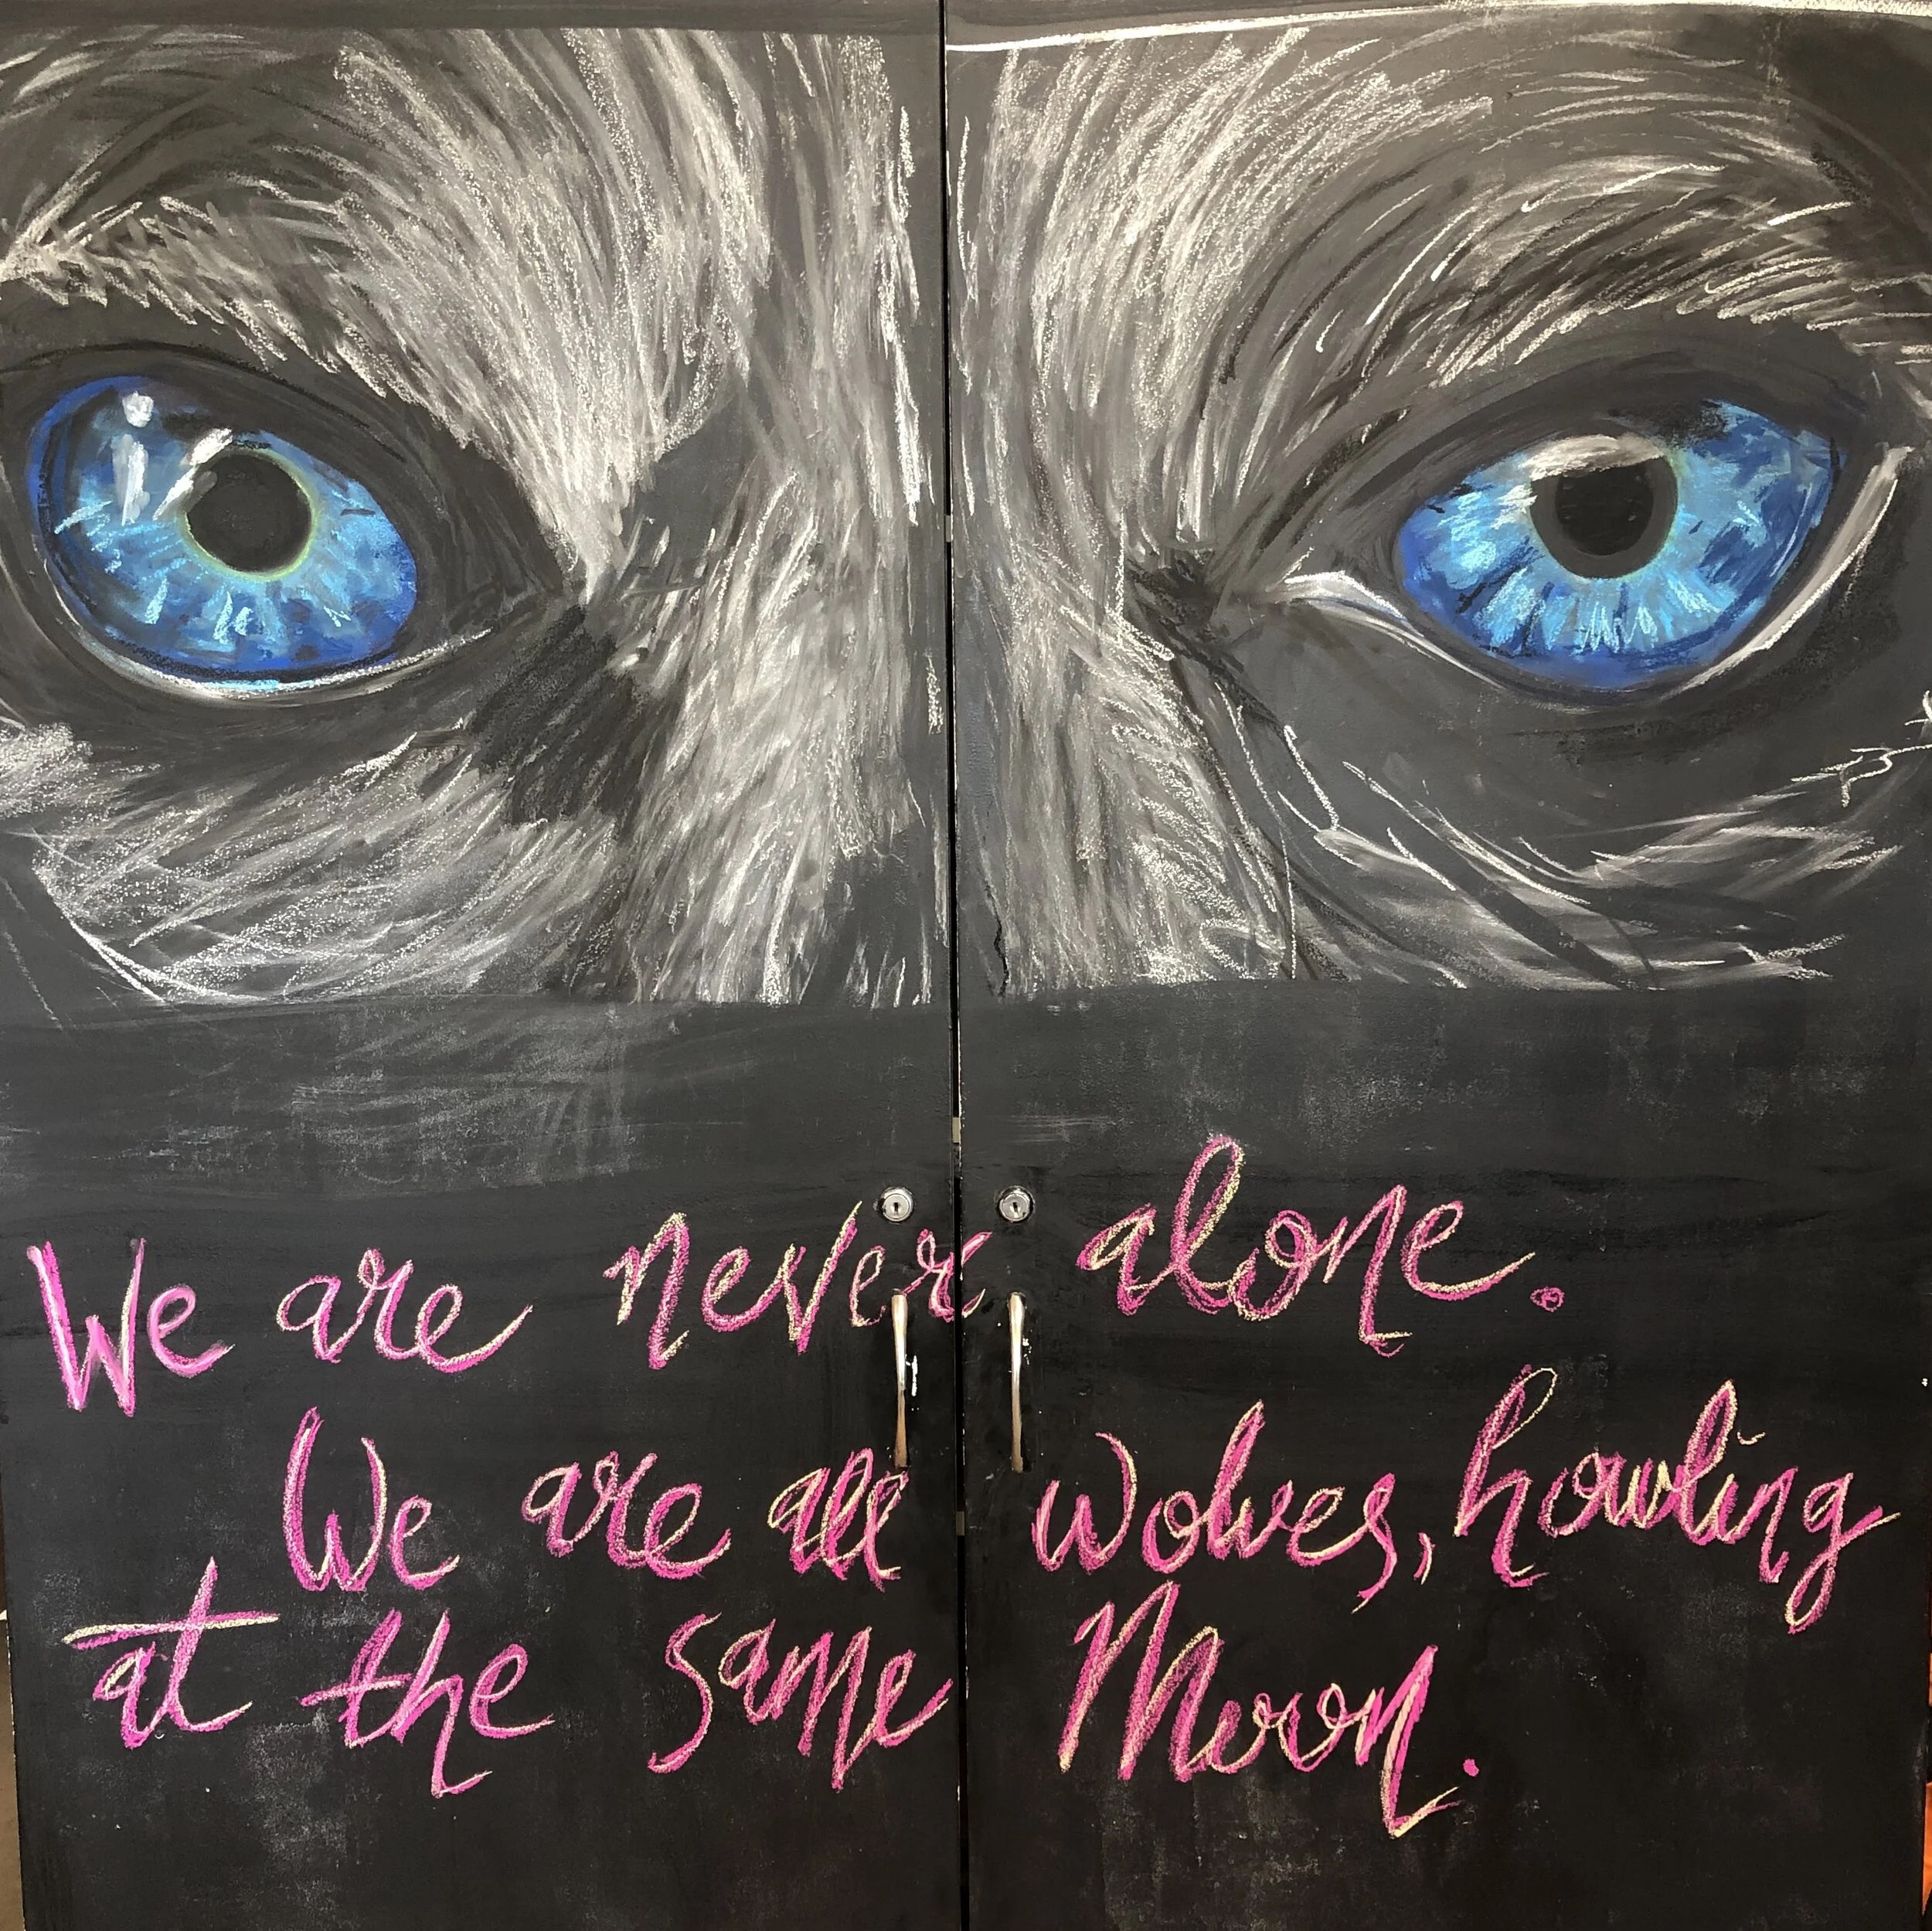 We are never alone.
We are all wolves, howling
at the same Moon.